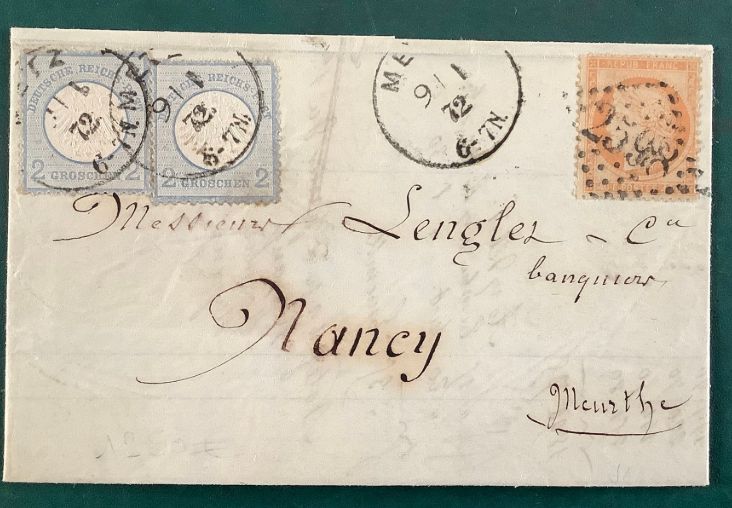 DEUTSCHE REICHS
2 GROSCHEN 2
METZ
9 1
72
6-7N.
REICHS-POST
2 GROSCHEN 2
9 1
72
6-7N.
ME
9 1
72
6-7N.
REPUB FRANC
Messieurs Lenglet & Cie
banquiers
Nancy
Meurthe